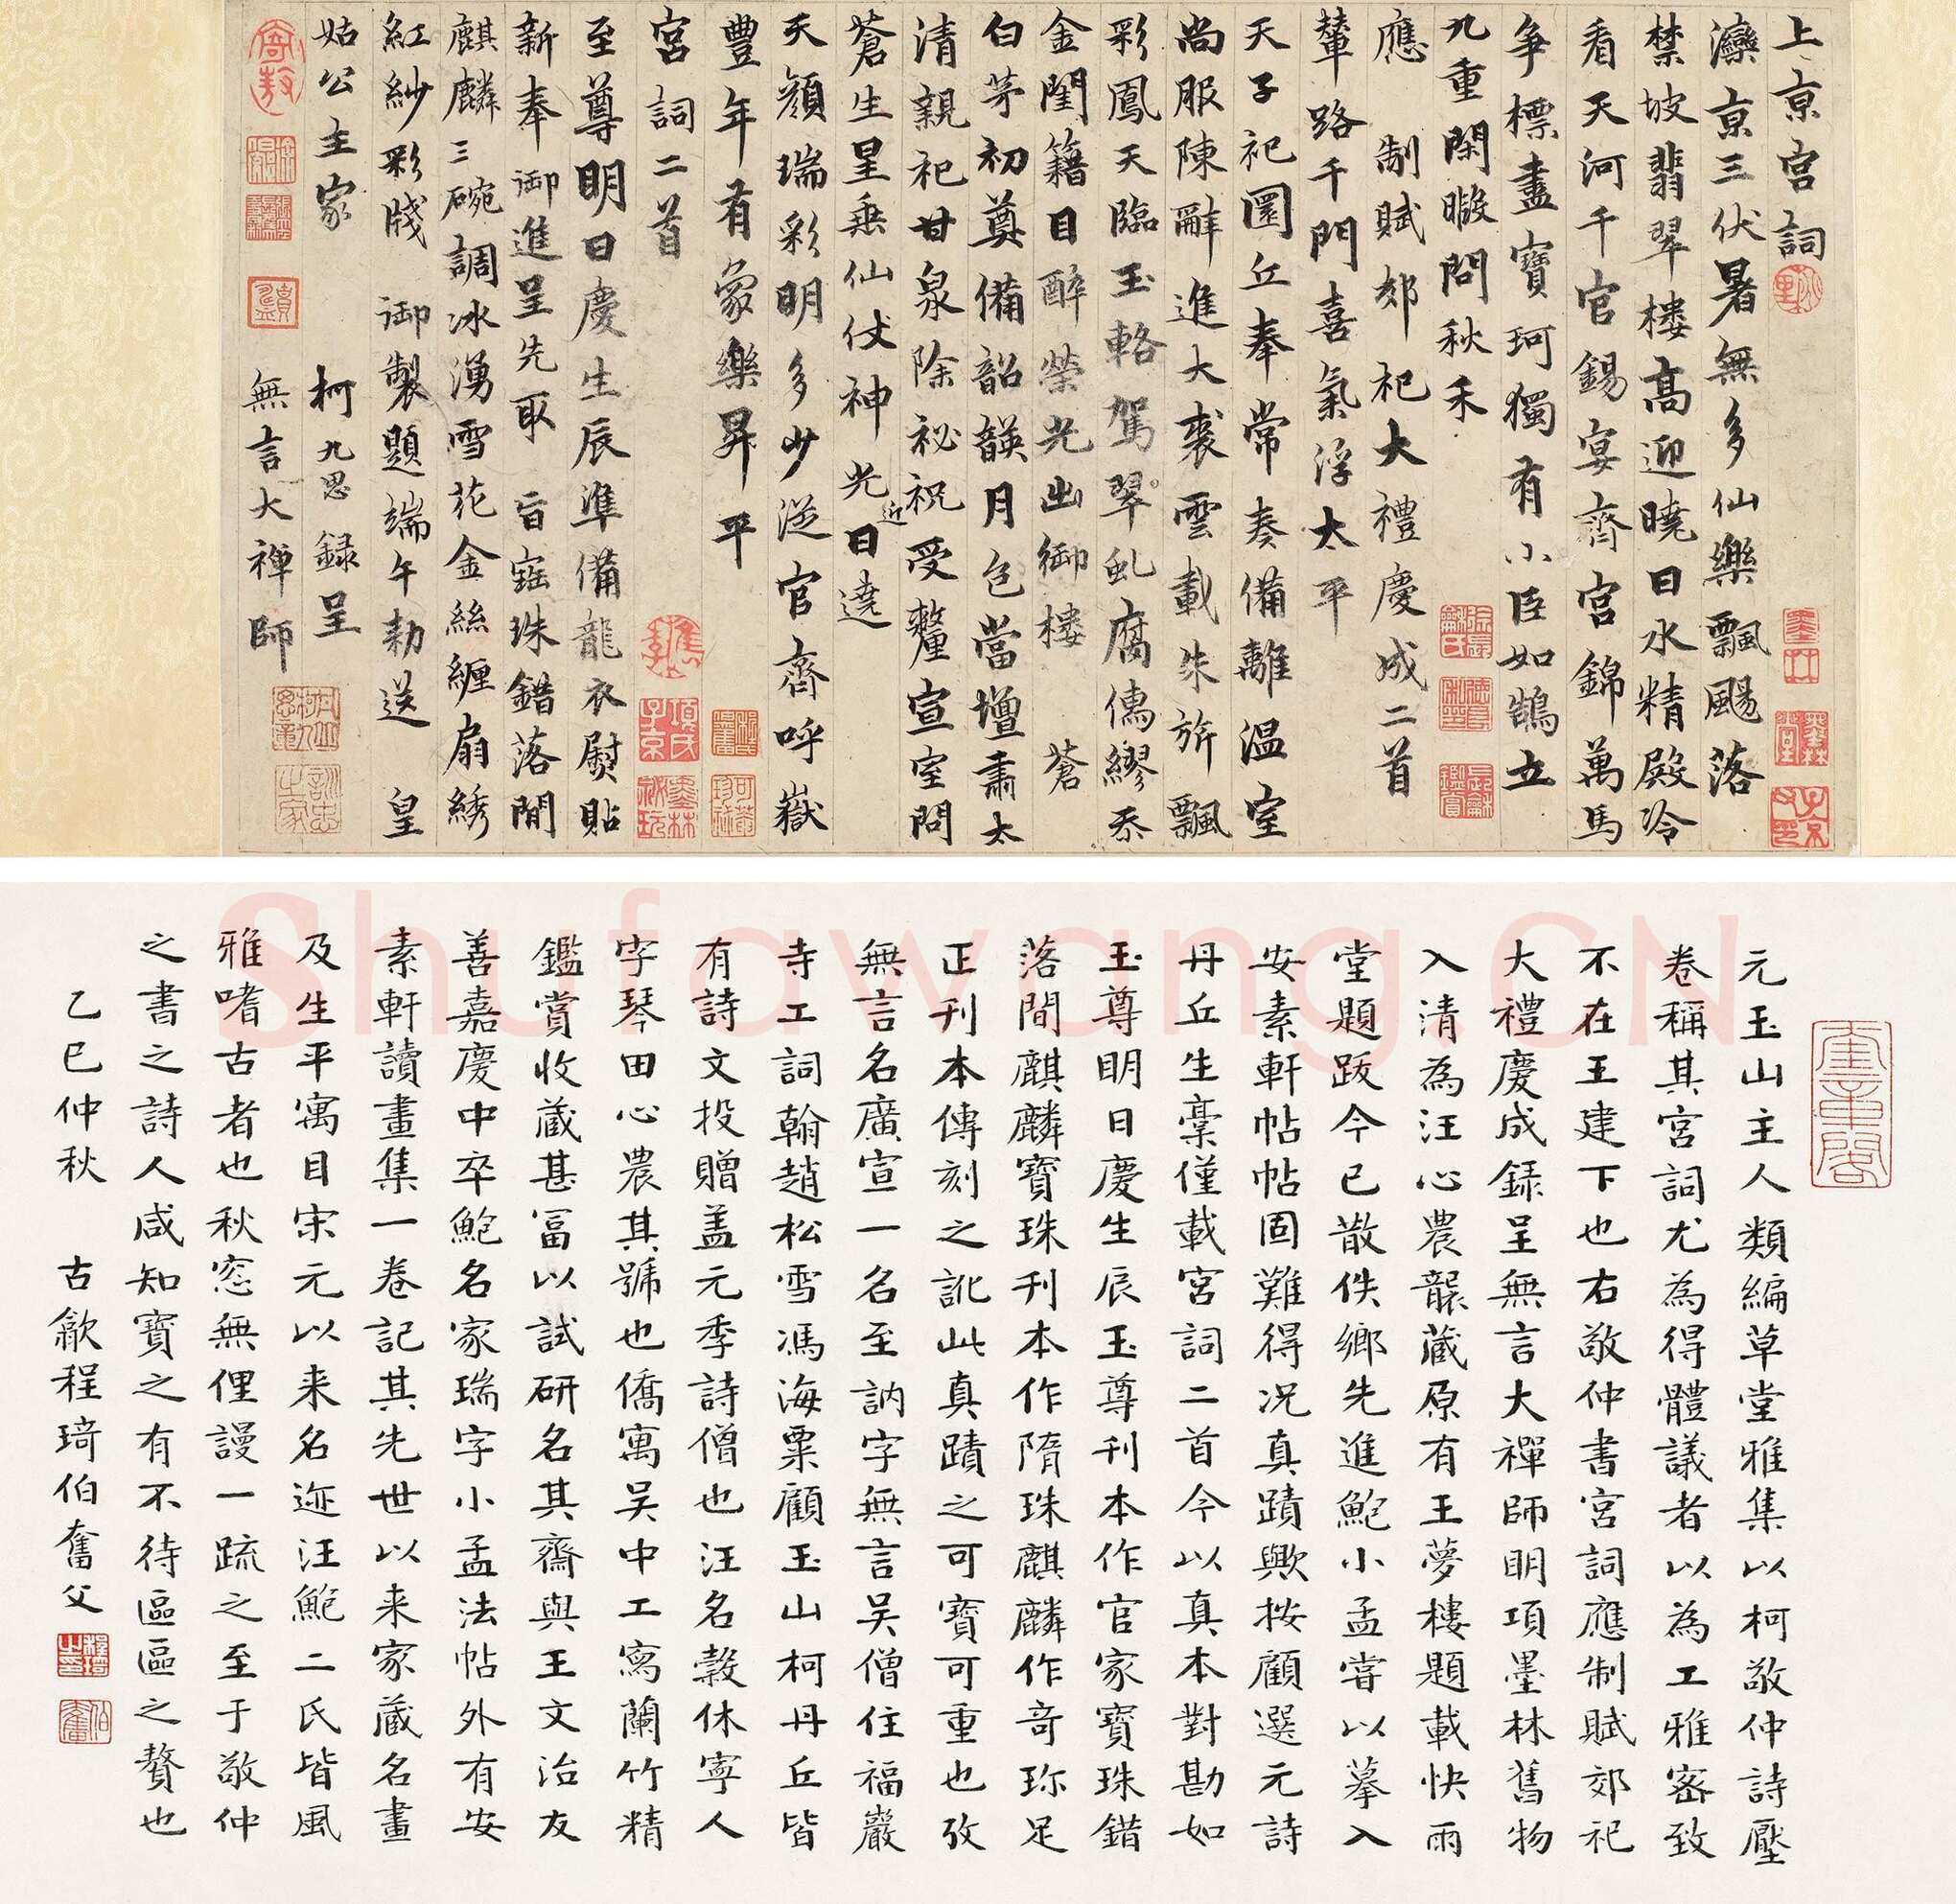 上京宮詞
灤京三伏暑無多仙樂飄颺落
禁坡翡翠樓高迎曉日水精殿冷
看天河千官錫宴齊宮錦萬馬
爭標盡寶珂獨有小臣如鵠立
九重閑暇問秋禾
應制賦郊祀大禮慶成二首
輦路千門喜氣浮太平
天子祀圜丘奉常奏備離溫室
尚服陳辭進大裘雲載朱旂飄
彩鳳天臨玉輅駕翠虬腐儒繆忝
金閨籍目醉榮光出御樓 蒼
白茅初奠備韶韺月色當壇肅太
清親祀甘泉除祕祝受釐宣室問
蒼生星垂仙仗神光近日遶
天顏瑞彩明多少從官齊呼嶽
豐年有象樂昇平
宮詞二首
至尊明日慶生辰準備龍衣熨貼
新奉御進呈先取旨寶珠錯落間
麒麟三碗調冰湧雪花金絲纏扇綉
紅紗彩牋御製題端午勅送皇
姑公主家
柯九思錄呈
無言大禪師
元玉山主人類編草堂雅集以柯敬仲詩壓
卷稱其宮詞尤為得體議者以為工雅密致
不在王建下也右敬仲書宮詞應制賦郊祀
大禮慶成錄呈無言大禪師明項墨林舊物
入清為汪心農襲藏原有王夢樓題載快雨
堂題跋今已散佚鄉先進鮑小孟嘗以摹入
安素軒帖帖固難得況真蹟歟按顧選元詩
丹丘生稾僅載宮詞二首今以真本對勘如
玉尊明日慶生辰玉尊刊本作官家寶珠錯
落間麒麟寶珠刊本作隋珠麒麟作奇珎足
正刊本傳刻之訛此真蹟之可寶可重也攷
無言名廣宣一名至訥字無言吳僧住福巖
寺工詞翰趙松雪馮海粟顧玉山柯丹丘皆
有詩文投贈盖元季詩僧也汪名穀休寧人
字琴田心農其號也僑寓吳中工寫蘭竹精
鑑賞收藏甚冨以試研名其齋與王文治友
善嘉慶中卒鮑名家瑞字小孟法帖外有安
素軒讀畫集一卷記其先世以来家藏名畫
及生平寓目宋元以来名迹汪鮑二氏皆風
雅嗜古者也秋窓無俚謾一疏之至于敬仲
之書之詩人咸知寶之有不待區區之贅也
乙巳仲秋 古歙程琦伯奮父
Shufawang.CN